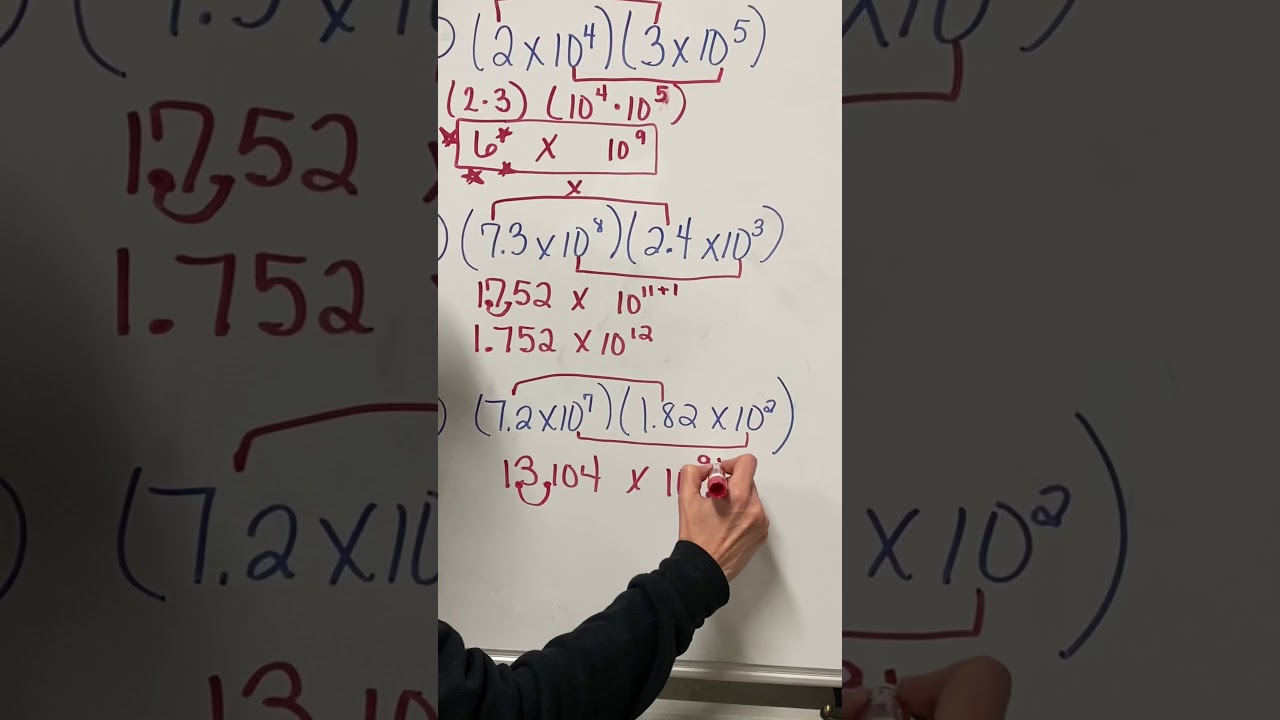 ) (2 x 10⁴)(3 x 10⁵)
(2·3) (10⁴·10⁵)
6 x 10⁹
x
) (7.3 x 10⁸)(2.4 x 10³)
17.52 x 10¹¹⁺¹
1.752 x 10¹²
) (7.2 x 10⁷)(1.82 x 10²)
13.104 x 10⁹